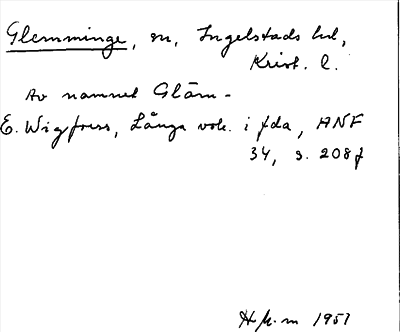 Glemminge, sn, Ingelstads hd,
Krist. l.
Av namnet Gläm-
E. Wigforss, Långa vok. i fda, ANF
34, s. 208 f
1957